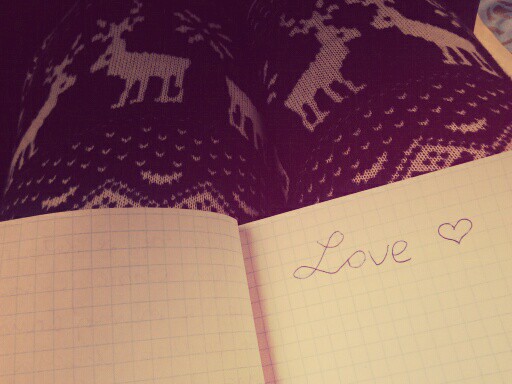 Love ♡